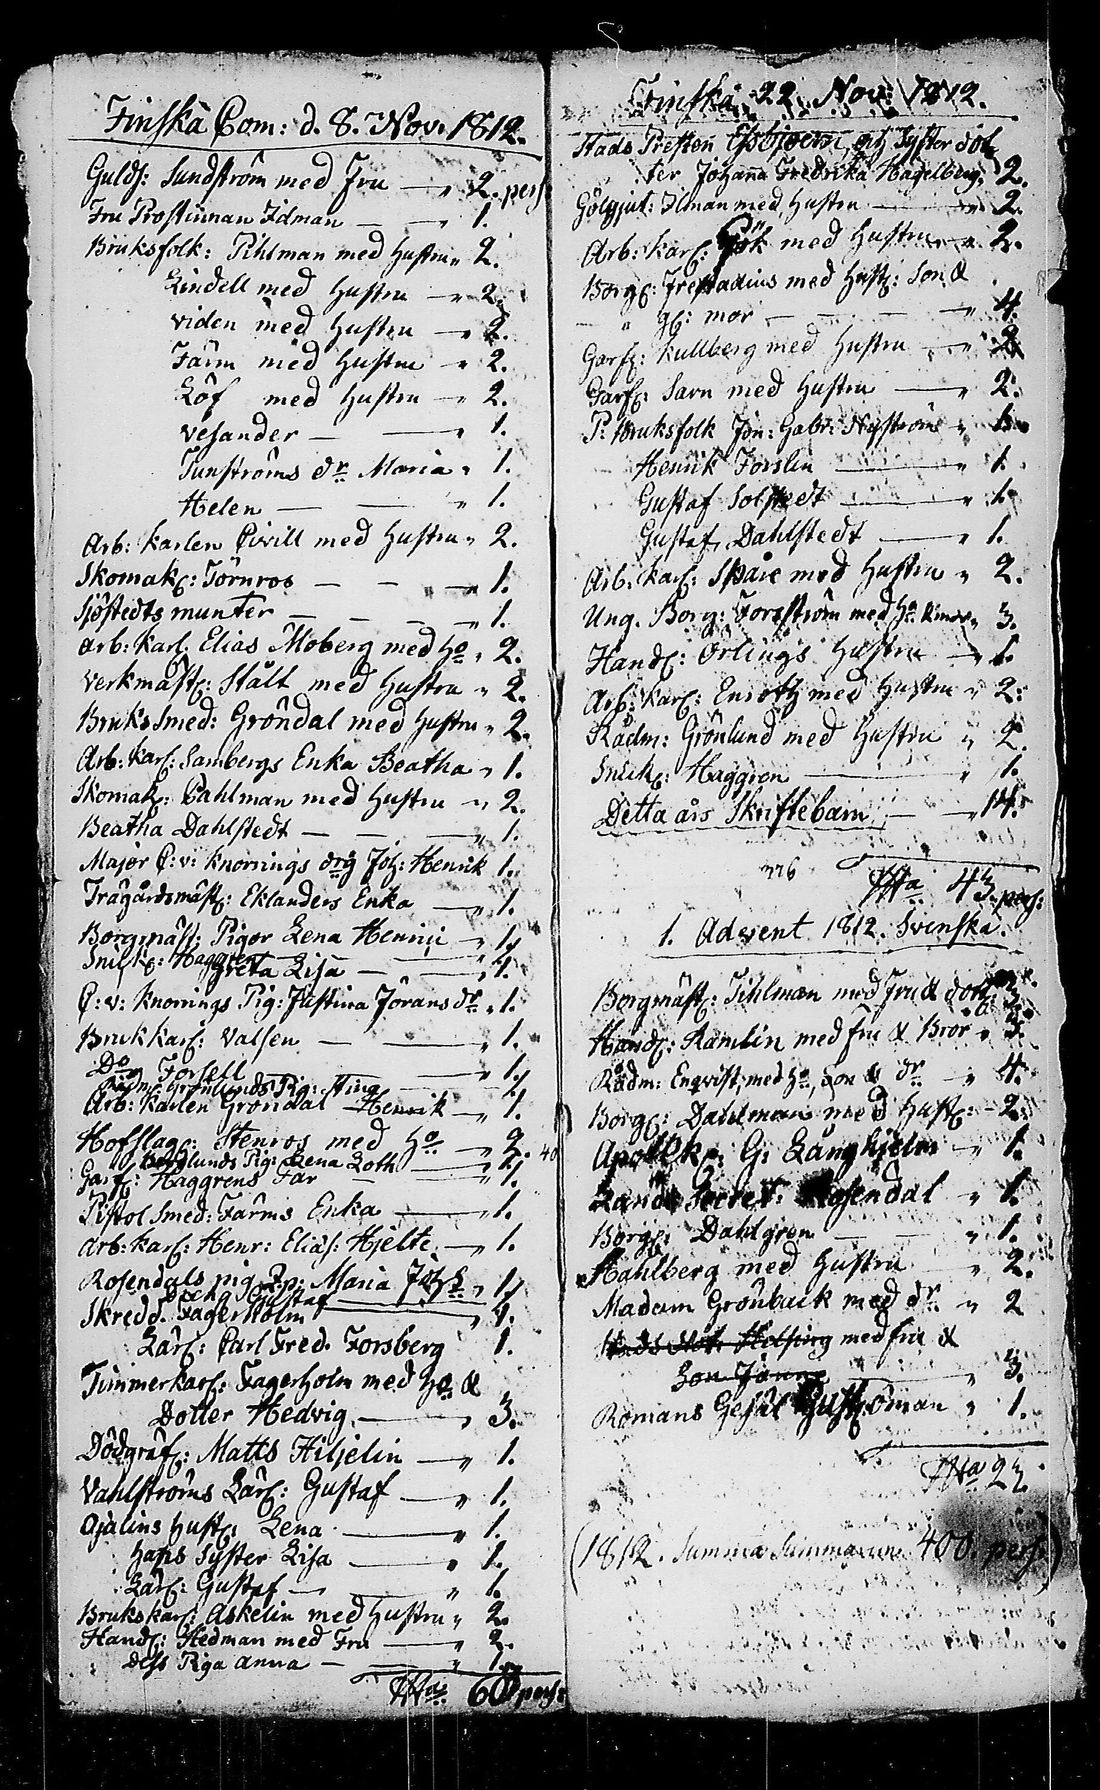 Finska Com: d. 8. Nov. 1812.
Gulds: Sundström med Fru — 2. pers:
Fru Prostinnan Idman — 1.
Bruksfolk: Pihlman med Hustru 2.
Lindell med Hustru — 2.
Viden med Hustru — 2.
Färm med Hustru — 2.
Löf med Hustru — 2.
Vesander — 1.
Tunströms dr Maria 1.
Helen — 1.
Arb: Karlen Civill med Hustru 2.
Skomak: Törnros — 1.
Sjöstedts munter — 1.
Arb: Karl. Elias Moberg med Ho 2.
Verkmäst: Stålt med Hustru 2.
Bruks Smed: Gröndal med Hustru 2.
Arb: Karl: Sambergs Enka Beatha 1.
Skomak: Dahlman med Hustru 2.
Beatha Dahlstedt — 1.
Major C: v: Knorrings drg Joh: Henrik 1.
Trägårdsmäst: Eklanders Enka — 1.
Borgmäst: Pigor Lena Henrici — 1.
Snick: Haggren
Greta Lisa — 1.
C: v: Knorrings Pig: Justina Jörans dr 1.
Bruk karl: Valsen — 1.
Do Forsell — 1.
Rådm: Grönlunds Pig: Stina — 1.
Arb: Karlen Gröndal Henrik — 1.
Hofslag: Stenros med Ho — 2. 40
Berglunds Pig: Lena Loth — 1.
Garf: Haggrens Far — 1.
Pistol Smed: Färms Enka — 1.
Arb: Karl: Henr: Elias: Hjelte — 1.
Rosendals pig Maria 1.
Gustaf
Skredd. Fagerholm 1.
Lärl: Carl Fred. Forsberg 1.
Timmerkarl: Fagerholm med Ho &
Dotter Hedvig — 3.
Dödgräf: Matts Hiljelin — 1.
Vahlströms Lärl: Gustaf — 1.
Ojalins Hust: Lena — 1.
hans Syster Lisa — 1.
Lärl: Gustaf — 1.
Brukskarl: Askelin med Hustru 2.
Handl: Hedman med Fru — 2.
Dess Piga Anna — 1.
Sma 60 pers:
Finska 22. Nov: 1812.
Stads Presten Esbjörn, och Syster dot
ter Johanna Fredrika Hagelberg 2.
Gölgjut: Ilman med Hustru — 2.
Arb: Karl: Gök med Hustru 2.
Borg: Frestadius med Hust: Son &
gl: mor — 4.
Garf: Kullberg med Hustru — 2
Garf: Sarn med Hustru — 2.
P: Bruksfolk Jon: Gabr: Nyström 1.
Henrik Forslin — 1.
Gustaf Solstedt — 1.
Gustaf Dahlstedt — 1.
Arb: Karl: Spare med Hustru 2.
Ung. Borg: Forsström med Ho & mor 3.
Handl: Örlings Hustru — 1.
Arb: Karl: Enroth med Hustru 2:
Rådm: Grönlund med Hustru 2.
Snick: Haggren — 1.
Detta års Skriftebarn — 14.
Sma 43 pers:
1. Advent 1812. Svenska.
Borgmäst: Tihlman med Fru & dott 3.
Handl: Ramlin med Fru & Bror 3.
Rådm: Enqvist med Ho, Son & dr — 4.
Borg: Dahlman med Hust: 2.
Apothek: G: Långhjelm — 1.
Lands Secret: Rosendal 1.
Borg: Dahlgren — 1.
Stahlberg med Hustru — 2.
Madam Grönback med dr 2
med Fru &
Son Janne — 3.
Romans Gesäl Gust: Öman 1.
Sma 23.
(1812. Summa Summarum 400. pers:)